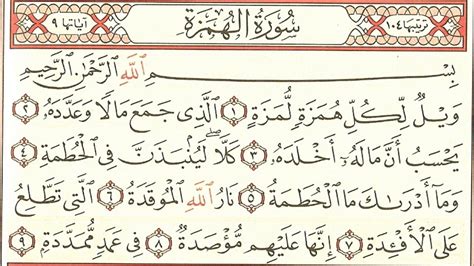 ترتيبها ١٠٤ سُورَةُ الْهُمَزَةِ آياتها ٩
بِسْمِ اللَّهِ الرَّحْمَٰنِ الرَّحِيمِ
وَيْلٌ لِّكُلِّ هُمَزَةٍ لُّمَزَةٍ ١ الَّذِي جَمَعَ مَالًا وَعَدَّدَهُ ٢
يَحْسَبُ أَنَّ مَالَهُ أَخْلَدَهُ ٣ كَلَّا ۖ لَيُنبَذَنَّ فِي الْحُطَمَةِ ٤
وَمَا أَدْرَاكَ مَا الْحُطَمَةُ ٥ نَارُ اللَّهِ الْمُوقَدَةُ ٦ الَّتِي تَطَّلِعُ
عَلَى الْأَفْئِدَةِ ٧ إِنَّهَا عَلَيْهِم مُّؤْصَدَةٌ ٨ فِي عَمَدٍ مُّمَدَّدَةٍ ٩